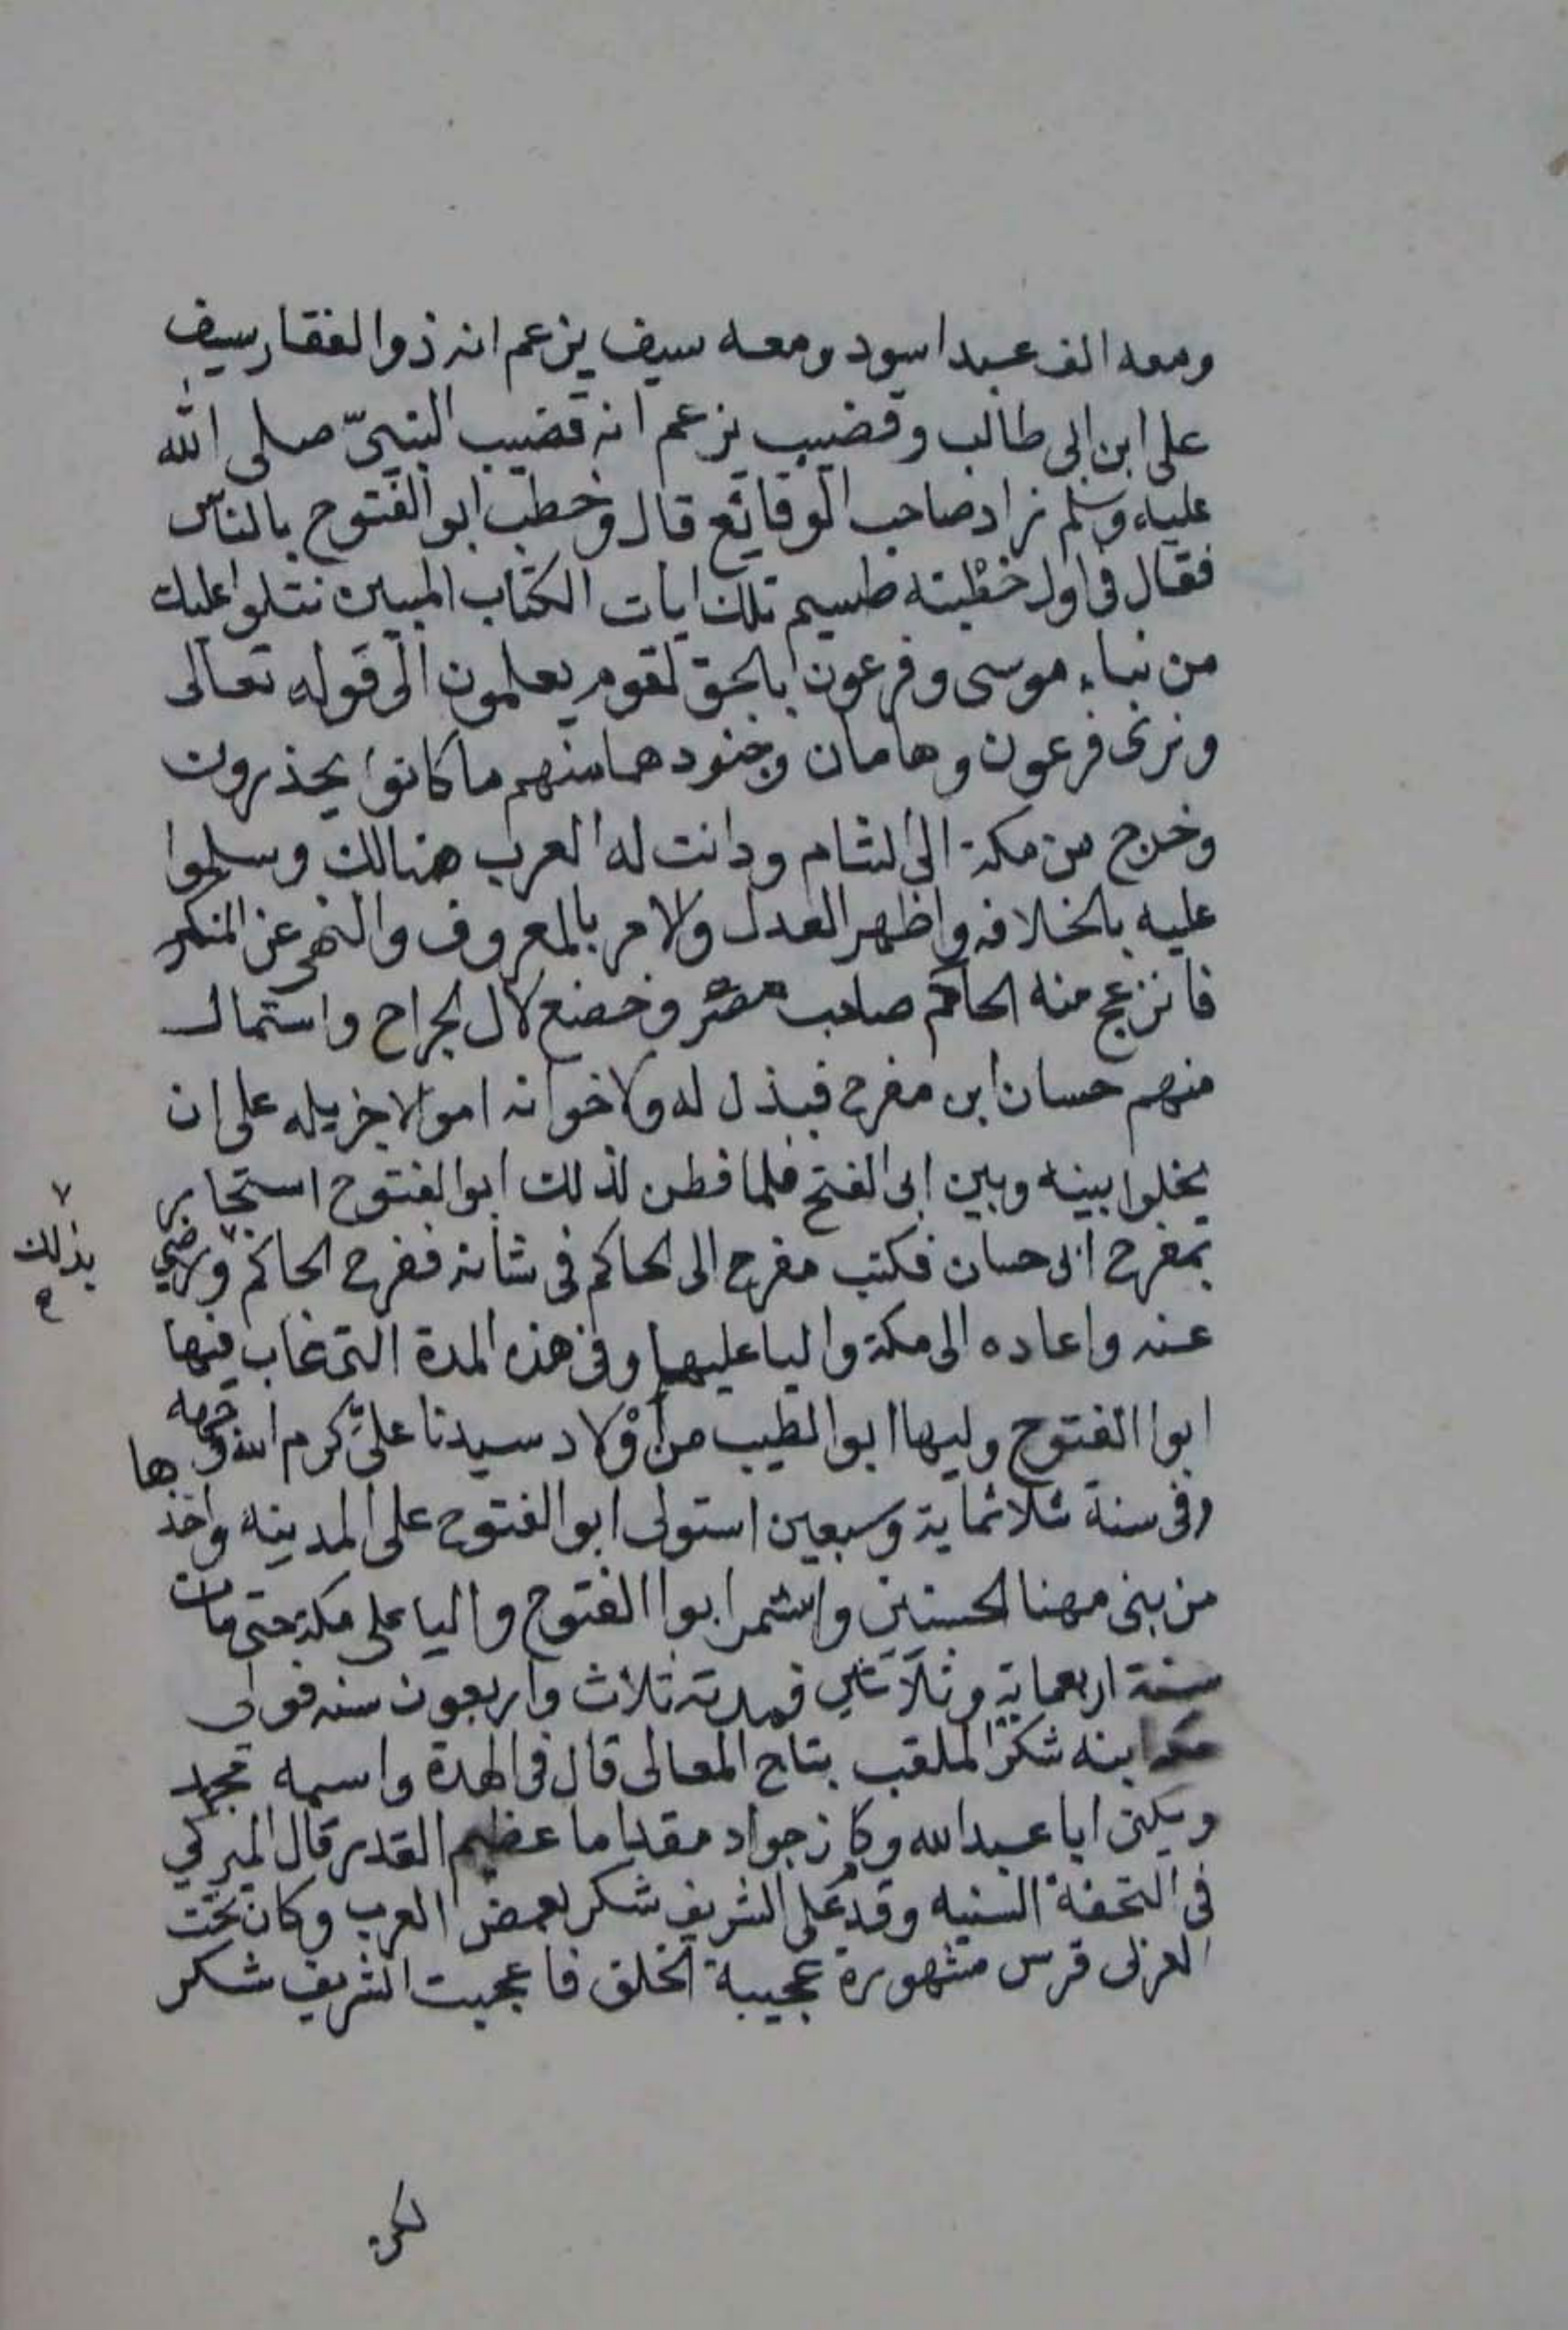 ومعه الف عبد اسود ومعه سيف يزعم انه ذو الفقار سيف
على ابن ابى طالب وقضيب يزعم انه قضيب النبىّ صلى الله
عليه وسلم زاد صاحب الوقائع قال وخطب ابو الفتوح بالناس
فقال فى اول خطبته طسم تلك ايات الكتاب المبين نتلوا عليك
من نباء موسى وفرعون بالحق لقوم يعلمون الى قوله تعالى
ونرى فرعون وهامان وجنودهما منهم ما كانوا يحذرون
وخرج من مكة الى الشام ودانت له العرب هنالك وسلموا
عليه بالخلافه واظهر العدل والامر بالمعروف والنهى عن المنكر
فانزعج منه الحاكم صاحب مصر وخضع لال الجراح واستمال
منهم حسان ابن مفرح فبذل له ولاخوانه اموالا جزيله على ان
يخلوا بينه وبين ابى الفتح فلما فطن لذلك ابو الفتوح استجار
بمفرح ابى حسان فكتب مفرح الى الحاكم فى شانه ففرح الحاكم ورضي
بذلك
عنه واعاده الى مكة واليا عليها وفى هذه المدة التى غاب فيها
ابوا الفتوح وليها ابوا الطيب من اولاد سيدنا علىّ كرم الله وجهه
وفى سنة ثلاثماية وسبعين استولى ابو الفتوح على المدينه واخذها
من بنى مهنا الحسنين واستمر ابوا الفتوح واليا على مكة حتى مات
سنة اربعماية وثلاثين فمدته ثلاث واربعون سنه فولى
ابنه شكر الملقب بتاج المعالى قال فى العدة واسمه محمد
ويكنى ابا عبد الله وكان جواد مقداما عظيم القدر قال
فى التحفة السنيه وقد على الشريف شكر بعض العرب وكان تحت
العزلى فرس مشهورة عجيبة الخلق فاعجبت الشريف شكر